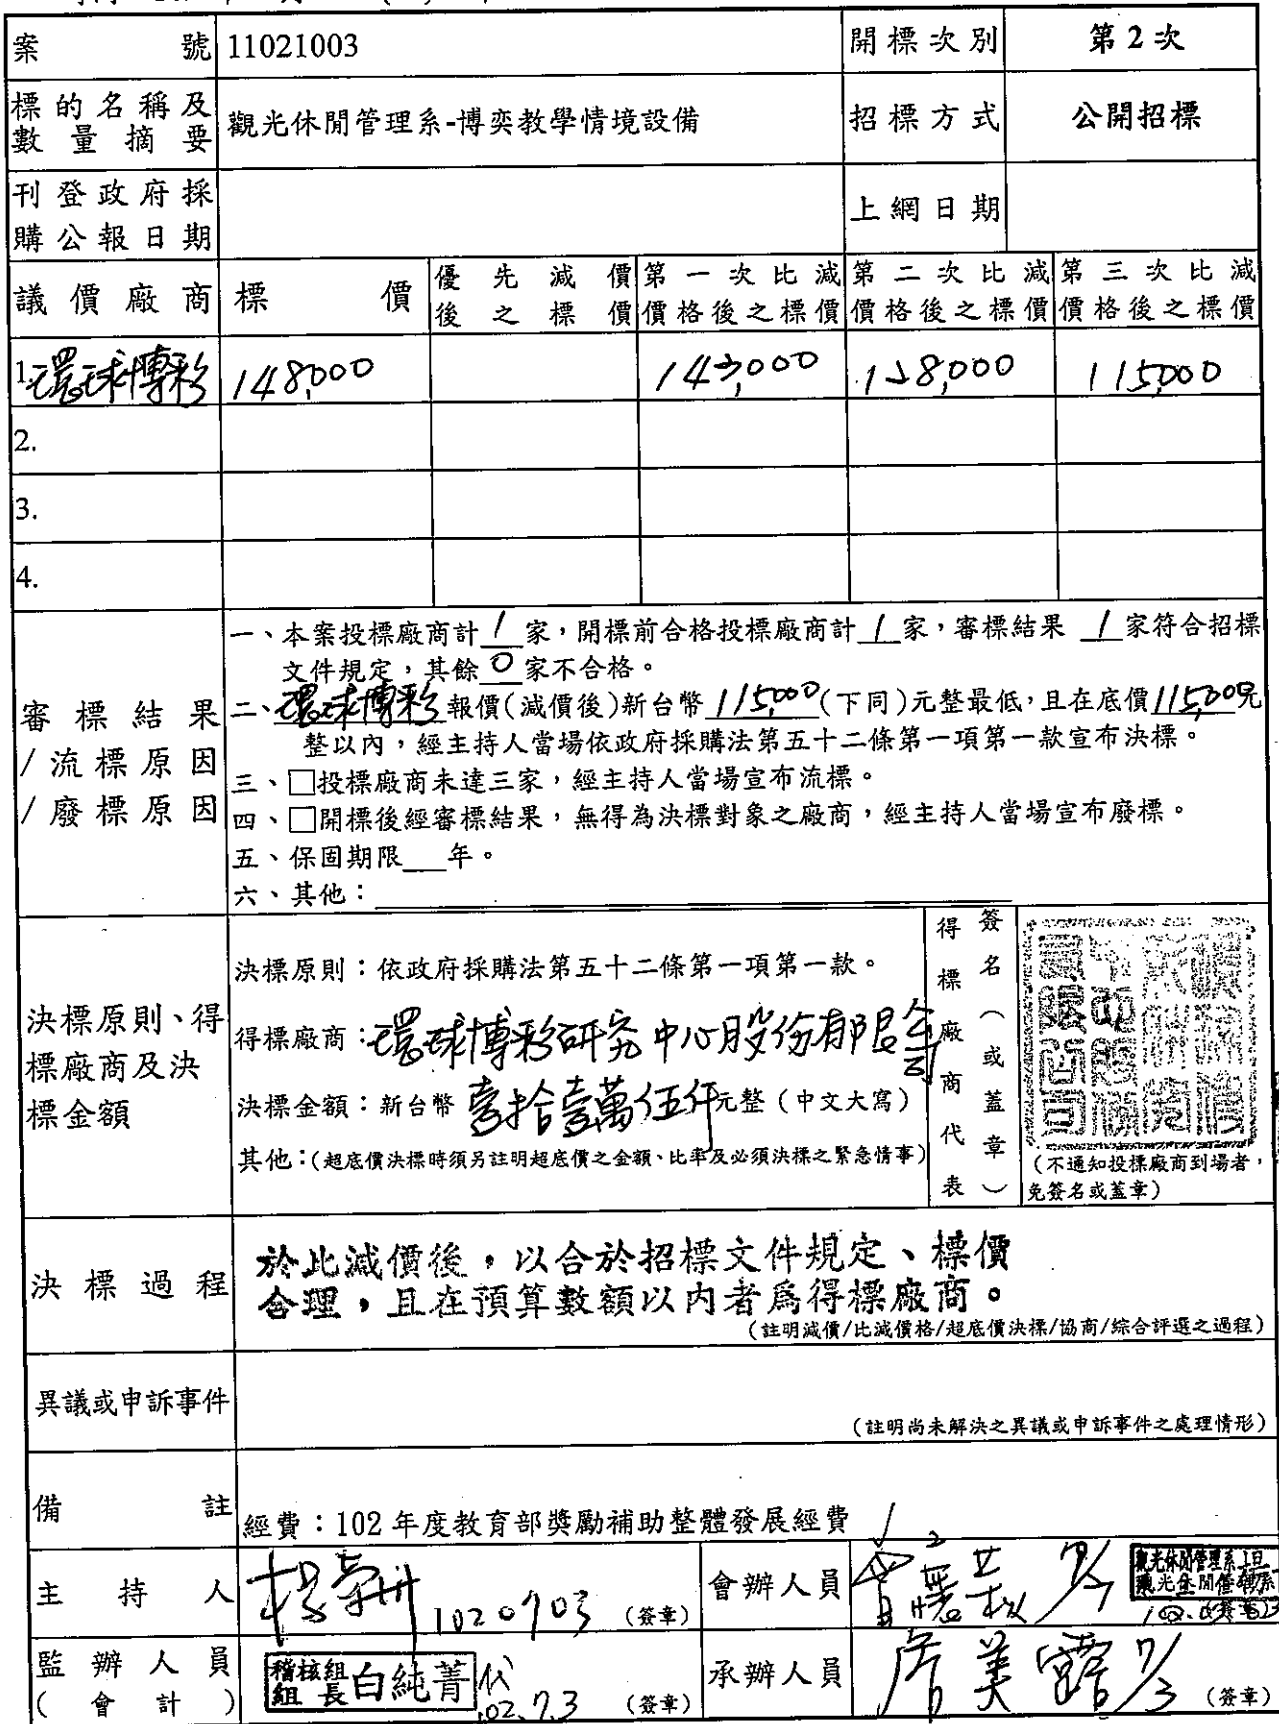 案號 11021003 開標次別 第2次
標的名稱及數量摘要 觀光休閒管理系-博奕教學情境設備 招標方式 公開招標
刊登政府採購公報日期 上網日期
議價廠商 標價 優先減價後之標價 第一次比減價格後之標價 第二次比減價格後之標價 第三次比減價格後之標價
1.環球博彩 148,000 115,000
2.
3.
4.
審標結果/流標原因/廢標原因
一、本案投標廠商計 1 家,開標前合格投標廠商計 1 家,審標結果 1 家符合招標
文件規定,其餘 0 家不合格。
二、環球博彩 報價(減價後)新台幣 115,000 (下同)元整最低,且在底價 115,000 元
整以內,經主持人當場依政府採購法第五十二條第一項第一款宣布決標。
三、□投標廠商未達三家,經主持人當場宣布流標。
四、□開標後經審標結果,無得為決標對象之廠商,經主持人當場宣布廢標。
五、保固期限___年。
六、其他:
決標原則、得標廠商及決標金額
決標原則:依政府採購法第五十二條第一項第一款。
得標廠商:環球博彩研究中心股份有限公司
決標金額:新台幣 壹拾壹萬伍仟元整(中文大寫)
其他:(超底價決標時須另註明超底價之金額、比率及必須決標之緊急情事)
得標廠商代表
簽名(或蓋章)
(不通知投標廠商到場者,
免簽名或蓋章)
決標過程
於比減價後,以合於招標文件規定、標價
合理,且在預算數額以內者為得標廠商。
(註明減價/比減價格/超底價決標/協商/綜合評選之過程)
異議或申訴事件
(註明尚未解決之異議或申訴事件之處理情形)
備註
經費:102年度教育部獎勵補助整體發展經費
主持人 1020703 (簽章) 會辦人員 觀光休閒管理系
監辦人員(會計) 稽核組組長 白純菁 代 102.7.3 (簽章) 承辦人員 7/3 (簽章)